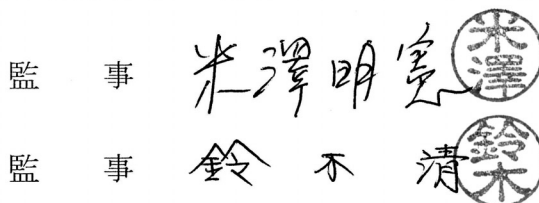 監事 米澤明憲 米澤
監事 鈴木清 鈴木